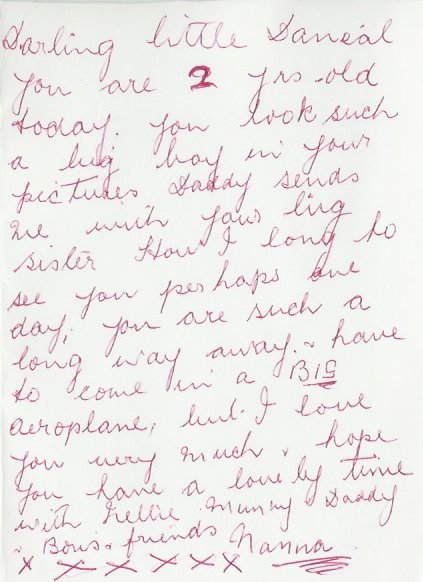 Darling little Daneal
you are 2 yrs old
today. you look such
a big boy in your
pictures Daddy sends
me with your big
sister How I long to
see you perhaps one
day, you are such a
long way away. & have
to come in a BIG
aeroplane, but I love
you very much & hope
you have a lovely time
with Nellie Mummy Daddy
& Boris & friends Nanna
x x x x x x